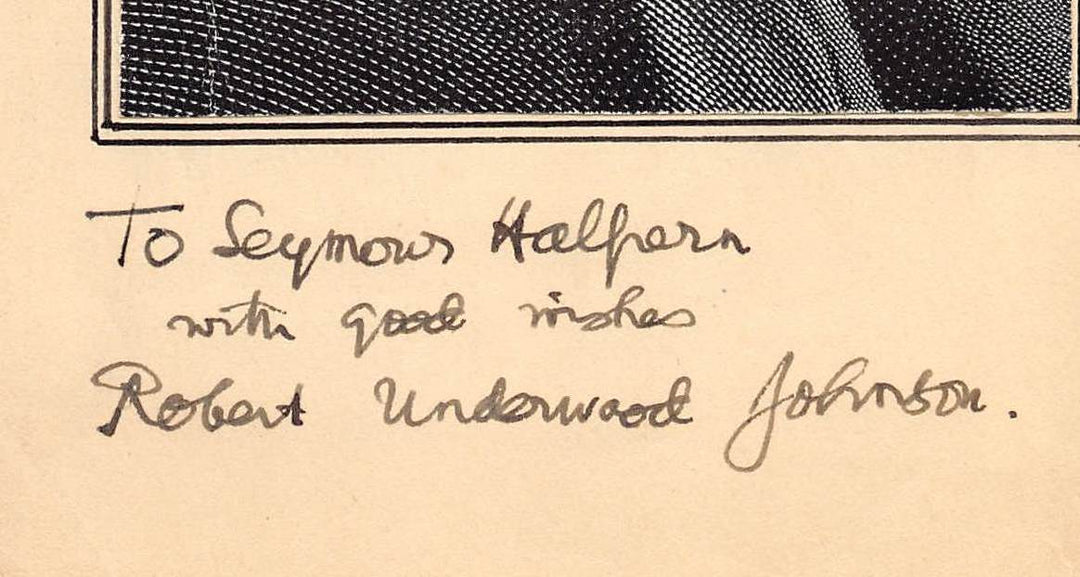 To Seymour Halpern
with good wishes
Robert Underwood Johnson.